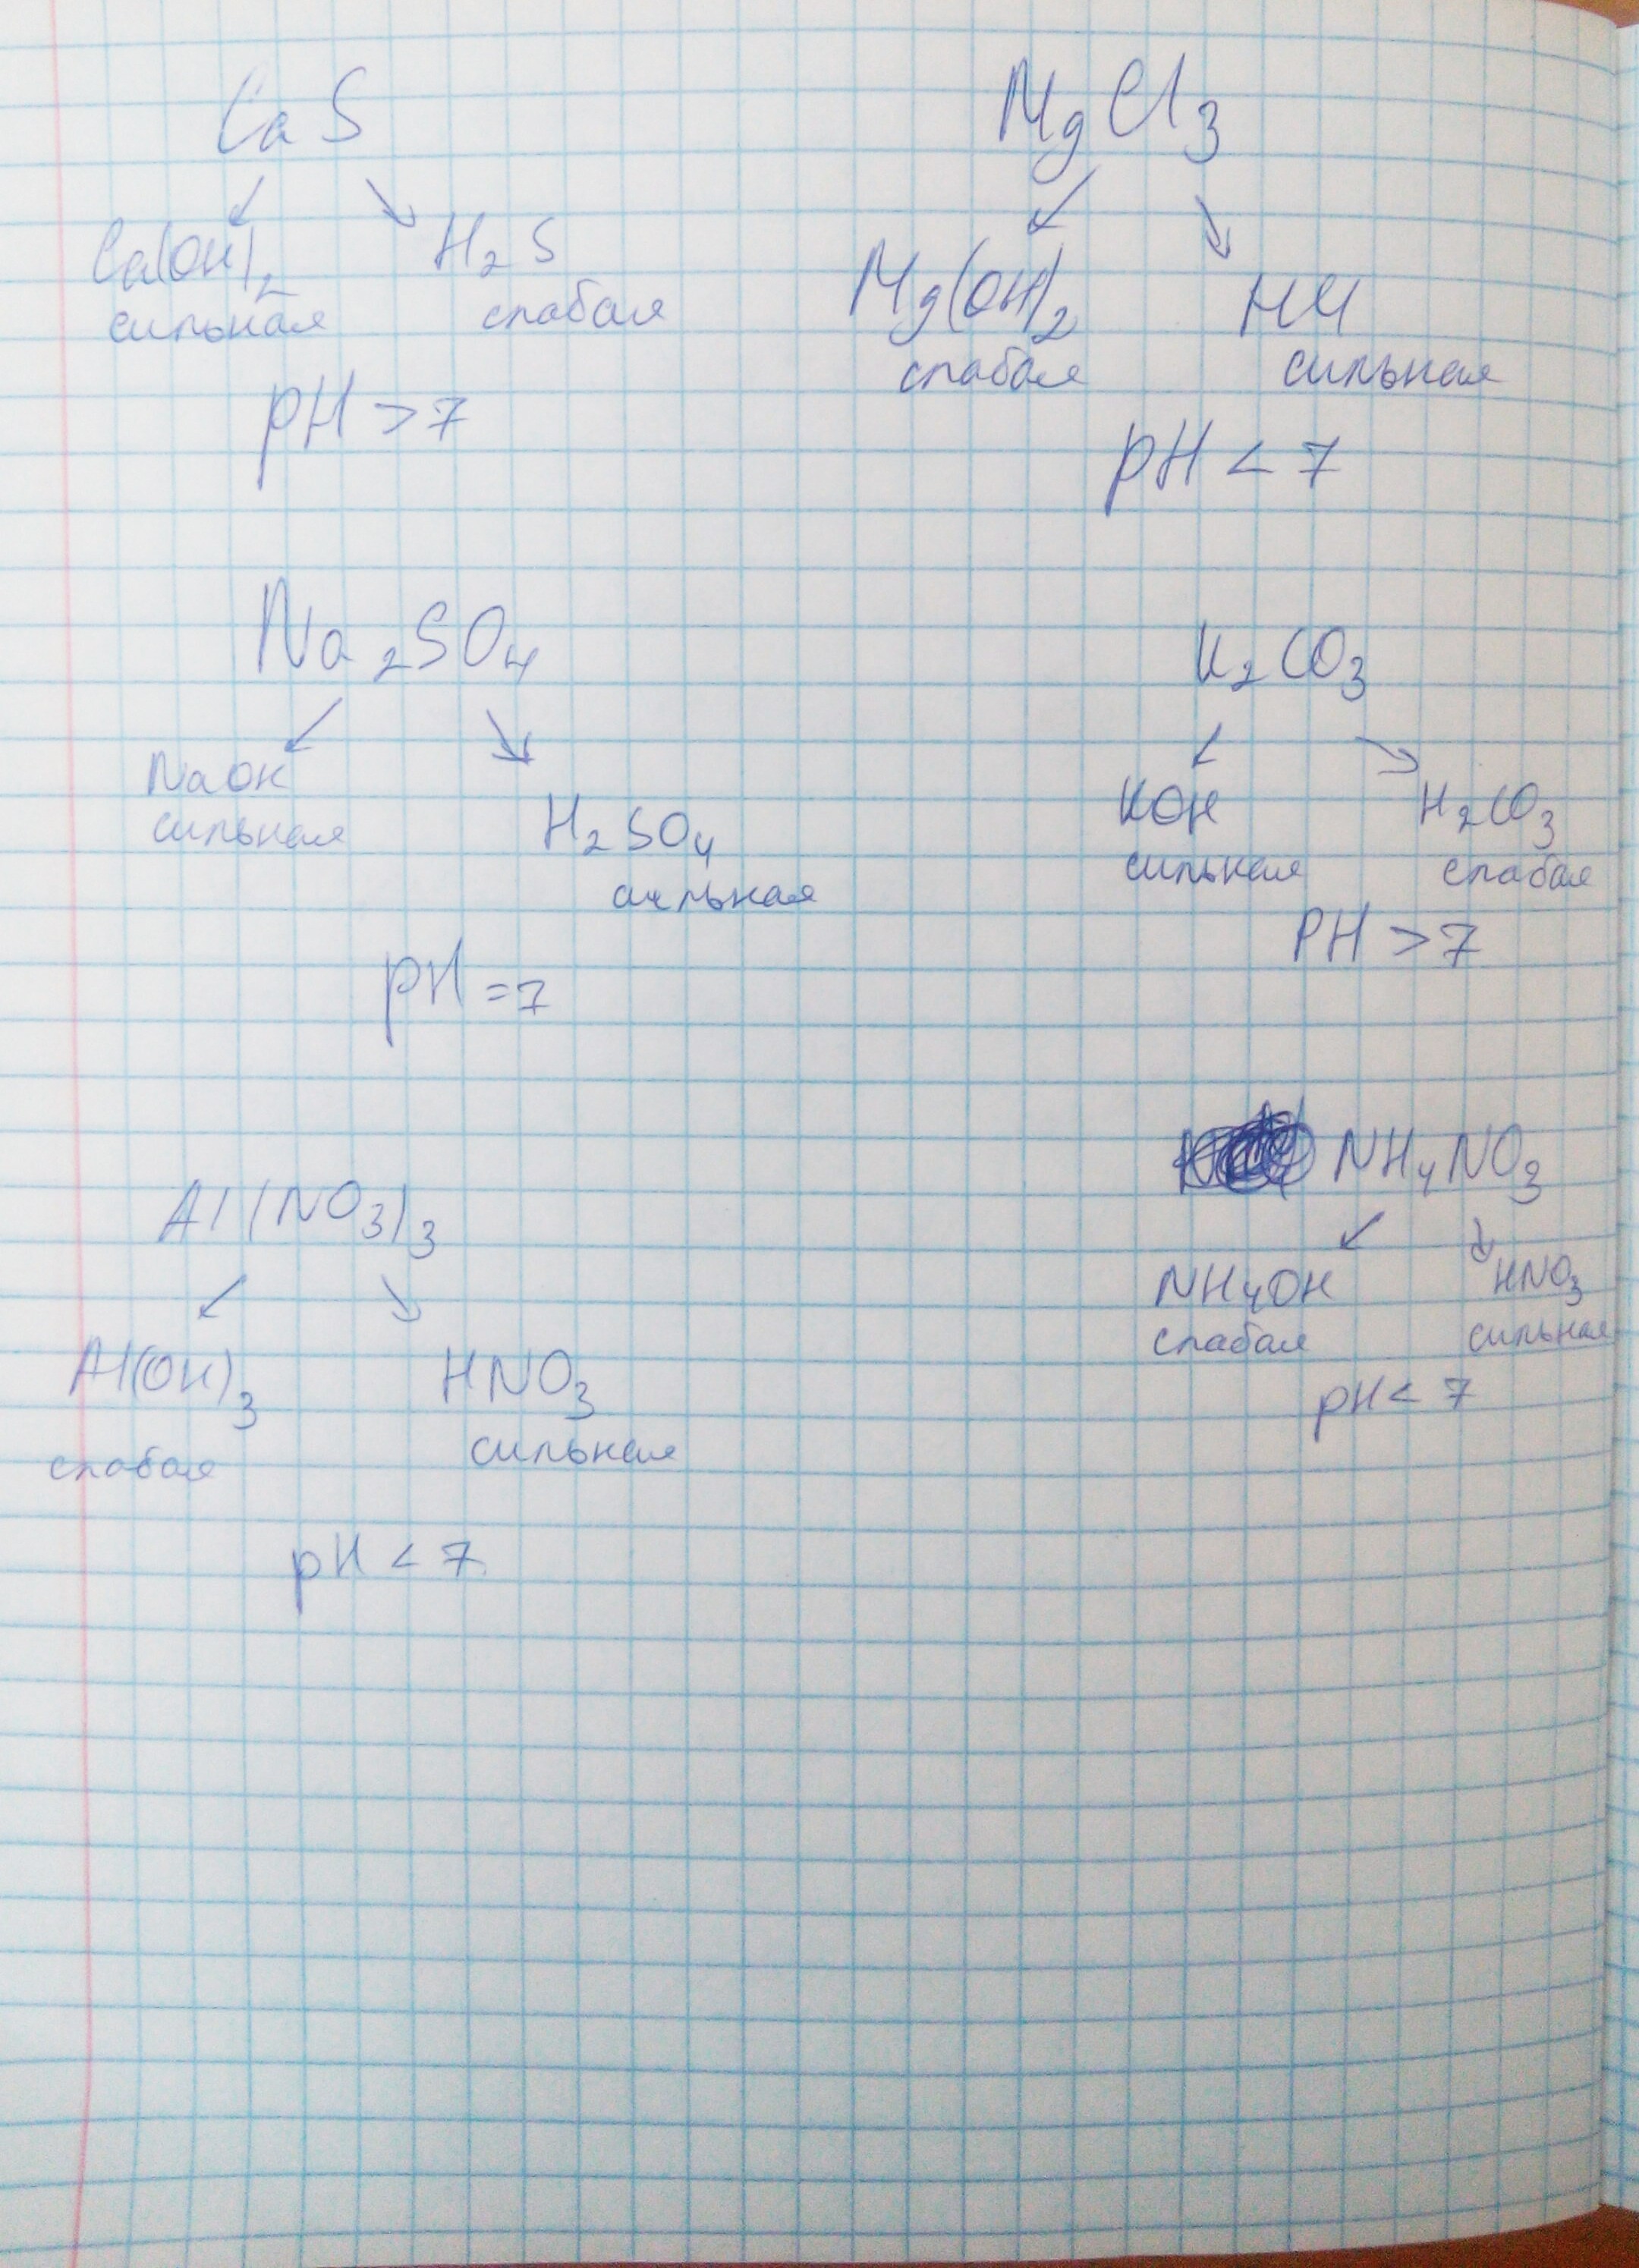 CaS
Ca(OH)2
сильная
H2S
слабая
pH > 7
MgCl3
Mg(OH)2
слабая
HCl
сильная
pH < 7
Na2SO4
NaOH
сильная
H2SO4
сильная
pH = 7
K2CO3
KOH
сильная
H2CO3
слабая
PH > 7
Al(NO3)3
Al(OH)3
слабая
HNO3
сильная
pH < 7
NH4NO3
NH4OH
слабая
HNO3
сильная
pH < 7